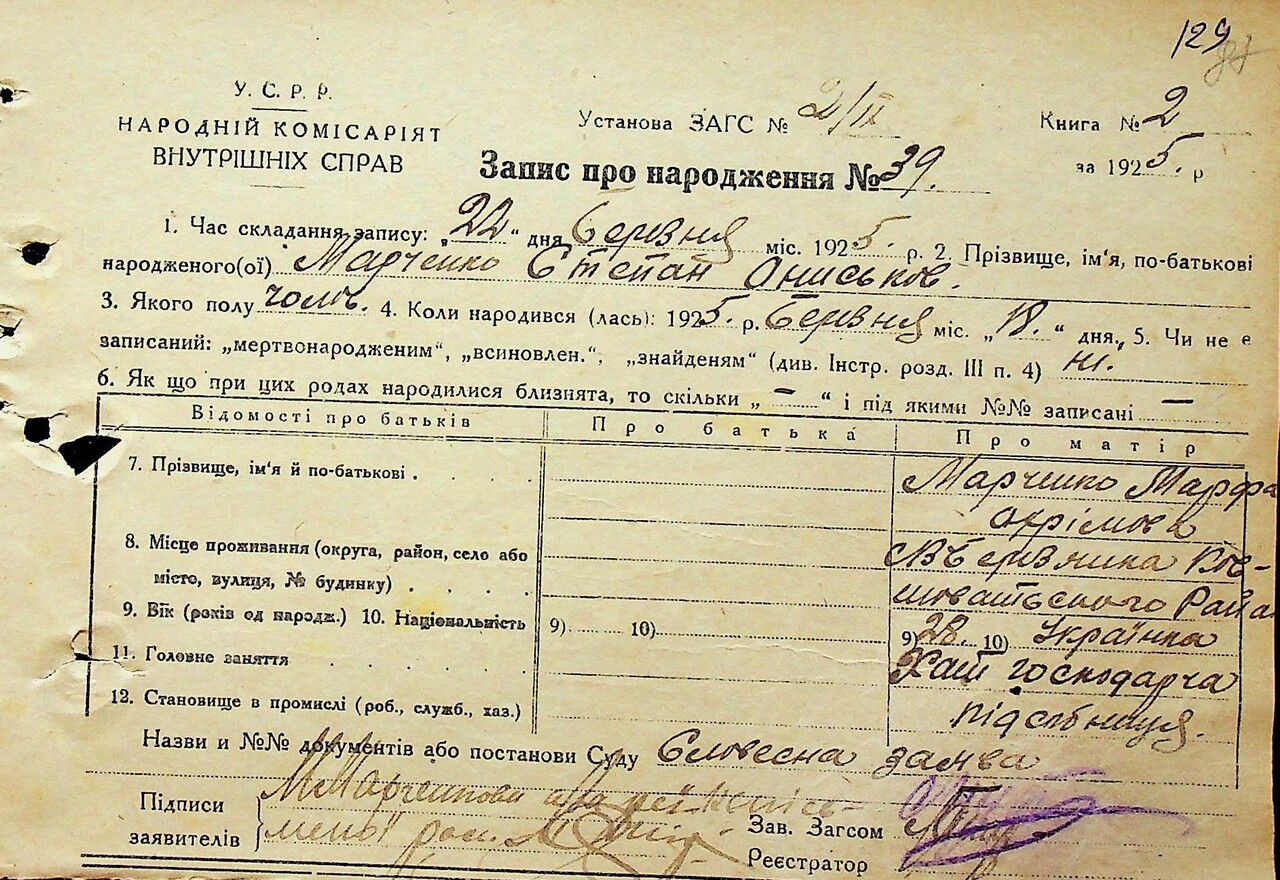 129
У. С. Р. Р.
НАРОДНІЙ КОМІСАРІЯТ
ВНУТРІШНІХ СПРАВ
Установа ЗАГС № 2/ІХ
Книга № 2
за 1925. р
Запис про народження № 39.
1. Час складання запису: „22“ дня Березня міс. 1925. р. 2. Прізвище, ім'я, по-батькові
народженого(ої) Марченко Степан Ониськов.
3. Якого полу чолов. 4. Коли народився (лась): 1925. р. Березня міс. „18.“ дня, 5. Чи не е
записаний: „мертвонародженим“, „всиновлен.“, „знайденям“ (див. Інстр. розд. III п. 4) ні.
6. Як що при цих родах народилися близнята, то скільки „—“ і під якими №№ записані —
Відомості про батьків Про батька Про матір
7. Прізвище, ім'я й по-батькові . . . . Марченко Марфа
Охрімова
8. Місце проживання (округа, район, село або
місто, вулиця, № будинку) . . . .
9. Вік (років од народж.) 10. Національність 9) 10) 9) 28. 10) Українка
11. Головне заняття . . . . . Хат господарча
12. Становище в промислі (роб., служб., хаз.) підсобниця.
Назви и №№ документів або постанови Суду Словесна заява
Підписи
заявителів
Зав. Загсом
Реєстратор